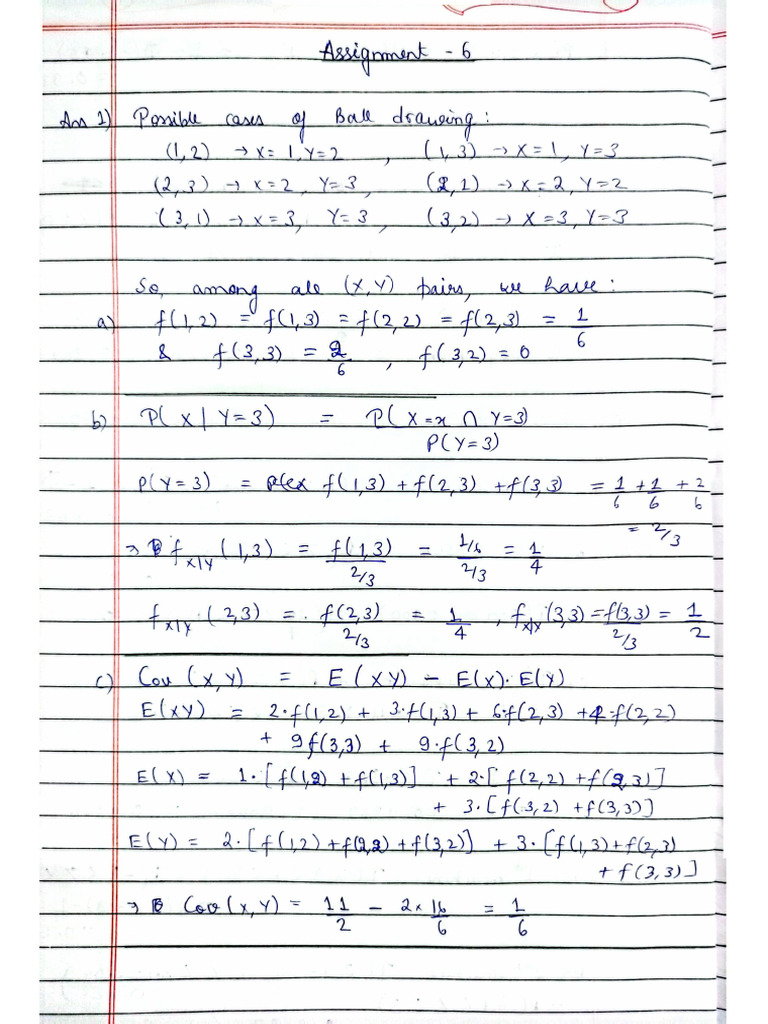 Assignment - 6
Ans 1) Possible cases of Ball drawing:
(1,2) → X = 1, Y = 2 , (1,3) → X = 1, Y = 3
(2,3) → X = 2, Y = 3, (2,1) → X = 2, Y = 2
(3,1) → X = 3, Y = 3 , (3,2) → X = 3, Y = 3
So, among all (X,Y) pairs, we have:
a) f(1,2) = f(1,3) = f(2,2) = f(2,3) = 1/6
& f(3,3) = 2/6 , f(3,2) = 0
b) P(X | Y=3) = P(X=x ∩ Y=3) / P(Y=3)
P(Y=3) = f(1,3) + f(2,3) + f(3,3) = 1/6 + 1/6 + 2/6
= 2/3
⇒ f_X|Y (1,3) = f(1,3) / 2/3 = 1/6 / 2/3 = 1/4
f_X|Y (2,3) = f(2,3) / 2/3 = 1/4 , f_X|Y (3,3) = f(3,3) / 2/3 = 1/2
c) Cov (X,Y) = E(XY) – E(X)·E(Y)
E(XY) = 2·f(1,2) + 3·f(1,3) + 6·f(2,3) + 4·f(2,2)
+ 9f(3,3) + 9·f(3,2)
E(X) = 1·[f(1,2) + f(1,3)] + 2·[f(2,2) + f(2,3)]
+ 3·[f(3,2) + f(3,3)]
E(Y) = 2·[f(1,2) + f(2,2) + f(3,2)] + 3·[f(1,3) + f(2,3)
+ f(3,3)]
⇒ Cov(X,Y) = 11/2 – 2 × 16/6 = 1/6